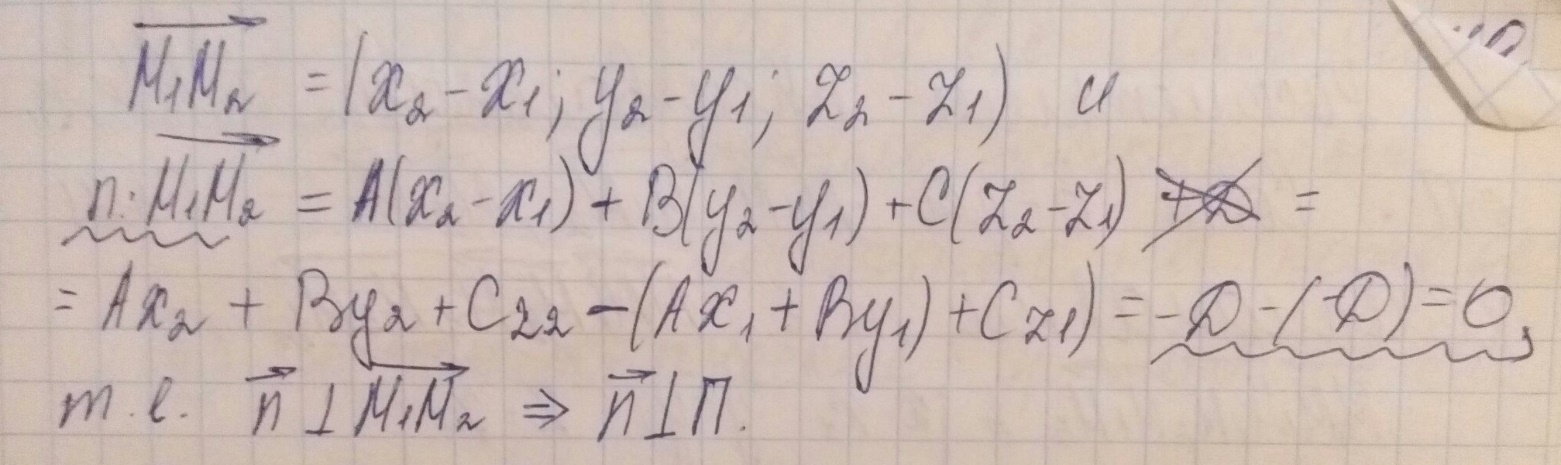 M₁M₂ = (x₂ - x₁; y₂ - y₁; z₂ - z₁) и
n · M₁M₂ = A(x₂ - x₁) + B(y₂ - y₁) + C(z₂ - z₁) =
= Ax₂ + By₂ + Cz₂ - (Ax₁ + By₁) + Cz₁) = -D - (-D) = 0,
т.е. n ⊥ M₁M₂ ⇒ n ⊥ П.